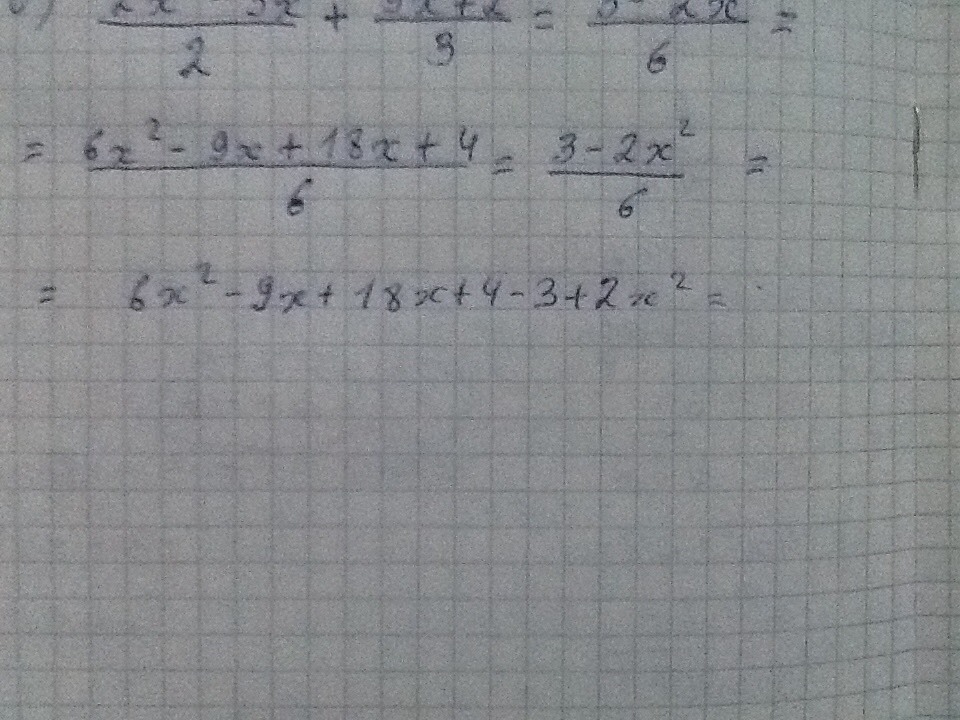 2 + 3 = 6 =
= 6x² - 9x + 18x + 4 / 6 = 3 - 2x² / 6 =
= 6x² - 9x + 18x + 4 - 3 + 2x² =